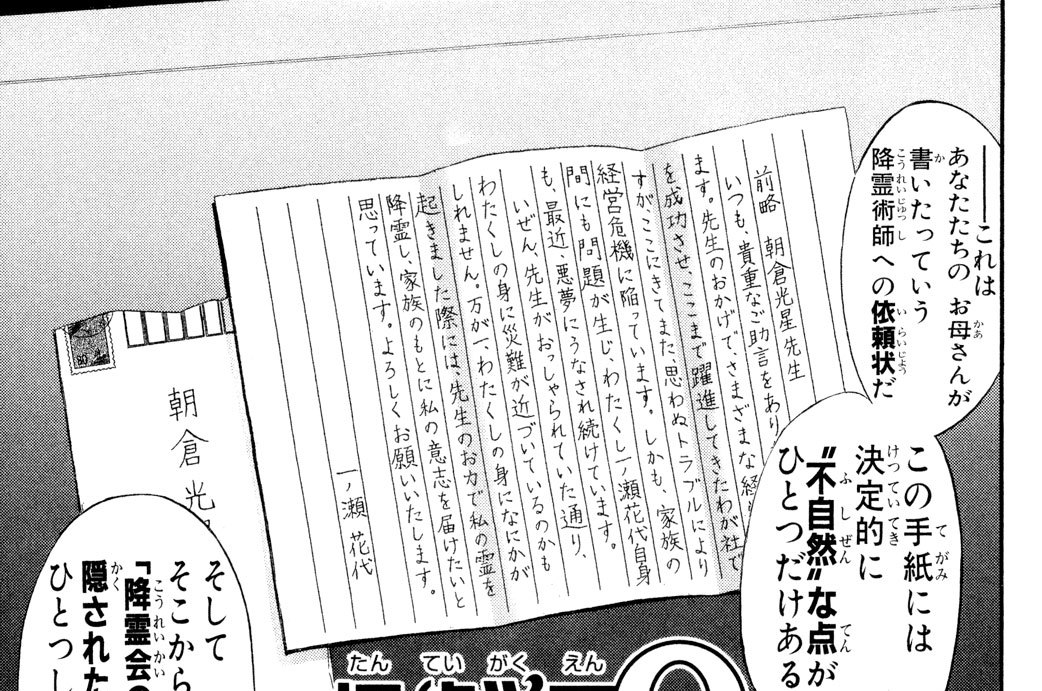 ――これは
あなたたちの お母さんが
書いたっていう
降霊術師への依頼状だ
この手紙には
決定的に
"不自然"な点が
ひとつだけある
前略 朝倉光星先生
いつも、貴重なご助言をあり
ます。先生のおかげで、さまざまな経
を成功させ、ここまで躍進してきたわが社で
すが、ここにきてまた、思わぬトラブルにより
経営危機に陥っています。しかも、家族の
間にも問題が生じ、わたくし一ノ瀬花代自身
も、最近、悪夢にうなされ続けています。
いぜん、先生がおっしゃられていた通り、
わたくしの身に災難が近づいているのかも
しれません。万が一、わたくしの身になにかが
起きました際には、先生のお力で私の霊を
降霊し、家族のもとに私の意志を届けたいと
思っています。よろしくお願いいたします。
一ノ瀬 花代
朝倉光
そして
そこから
「降霊会の
隠された
ひとつし
たんていがくえん